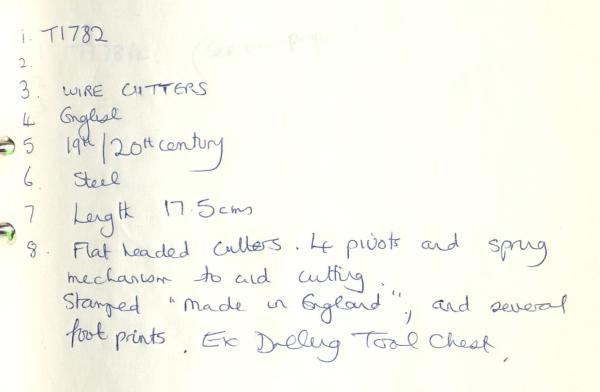 1. T1782
2.
3. WIRE CUTTERS
4 English
5 19th/20th century
6. Steel
7 Length 17.5cms
8. Flat headed cutters. 4 pivots and sprug
mechanism to aid cutting.
Stamped "made in England", and several
foot prints. Ex Tool Chest.